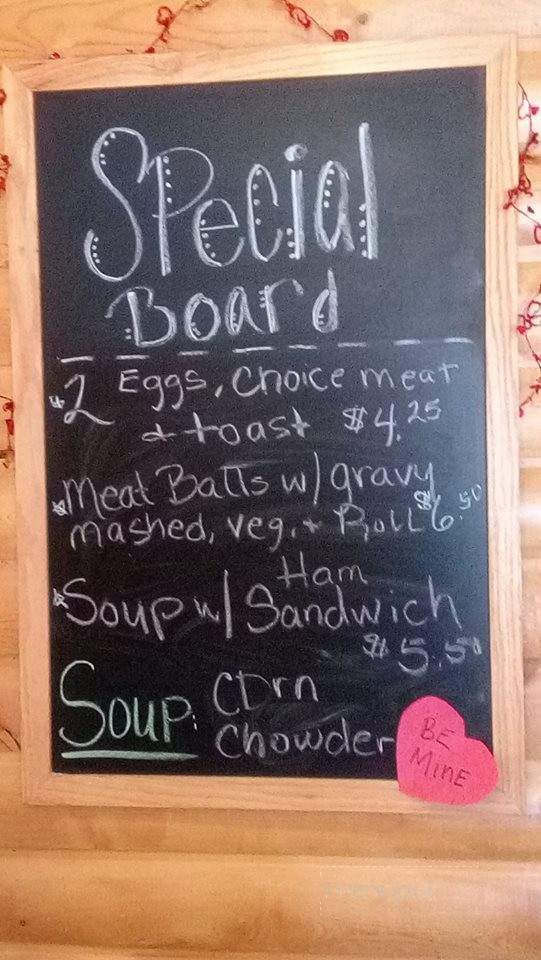 Special
Board
*2 Eggs, choice meat
& toast $4.25
*Meat Balls w/ gravy
mashed, veg. + Roll $6.50
Ham
*Soup w/ Sandwich
$5.50
Soup: Corn
Chowder
BE
MINE